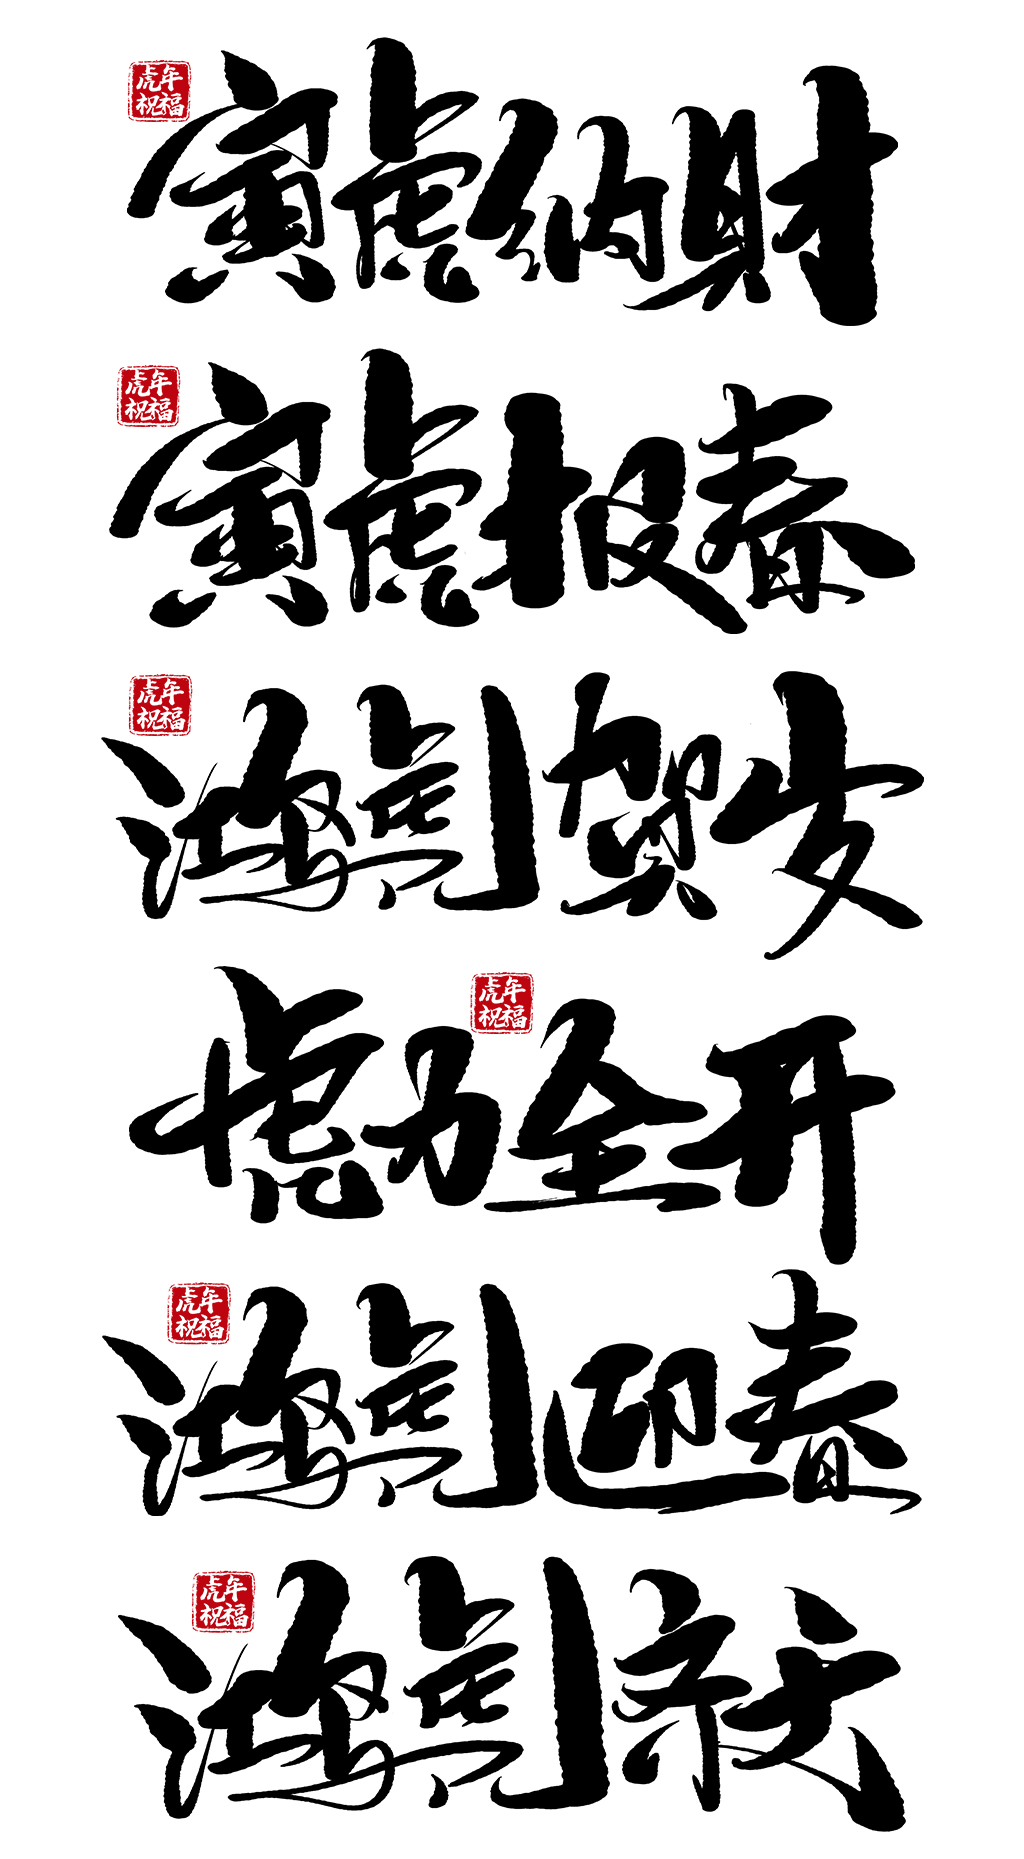 虎年
祝福
寅虎纳财
虎年
祝福
寅虎报春
虎年
祝福
鸿虎贺岁
虎年
祝福
虎力全开
虎年
祝福
鸿虎迎春
虎年
祝福
鸿虎齐天